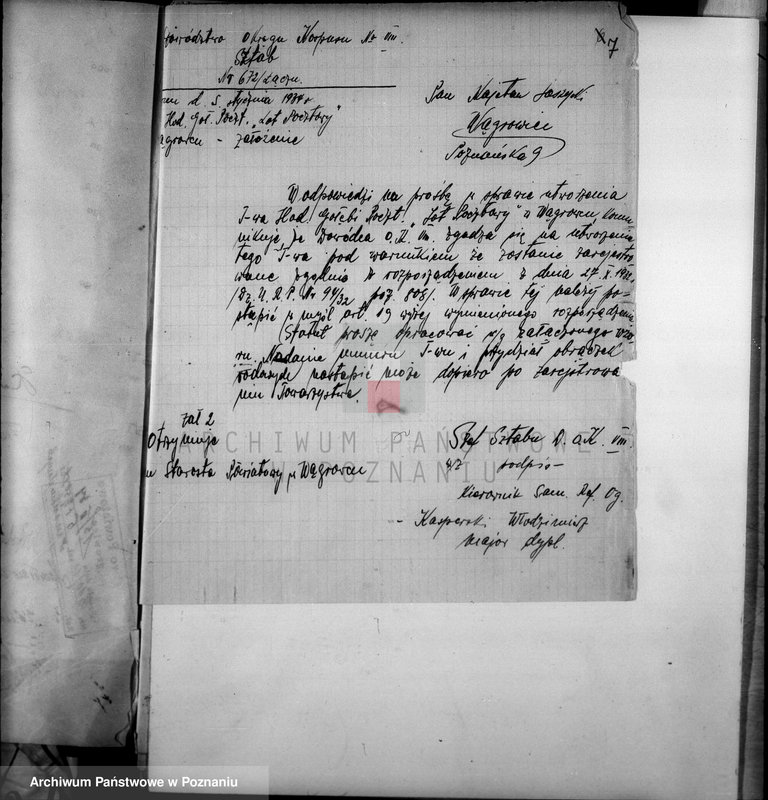 7
Okręgu Korpusu No VIII.
Sztab
No 672/zaczn.
d. 5. stycznia 1934 r
Hod. Goł. Poczt. „Lot Pocztowy”
– założenie
Pan Kajetan
Wągrowiec
Poznańska 9
W odpowiedzi na prośbę w sprawie utworzenia
T-wa Hod. Gołębi Poczt. „Lot Pocztowy” w Wągrowcu, komu-
nikuję że Dowódca O.K. VIII. zgadza się na utworzenie
tego T-wa pod warunkiem że zostanie zarejestro
wane zgodnie z rozporządzeniem z dnia 27.X.1932.
/Dz. U. R. P. Nr 94/32 poz. 808/. W sprawie tej należy po-
stąpić w myśl art. 19 wyżej wymienionego rozporządzenia
Statut proszę opracować w/g załączonego wzo
ru. Nadanie numeru T-wu i przydział obrączek
rodowych nastąpić może dopiero po zarejestrowa
niu Towarzystwa.
zał 2
Otrzymuje
Starosta Powiatowy w Wągrowcu
Szef Sztabu D.O.K. VIII
w/z podpis –
Kierownik Sam. Ref. Og.
– Kasperski Włodzimierz
major dypl.
ARCHIWUM PAŃSTWOWE
POZNANIU
Archiwum Państwowe w Poznaniu